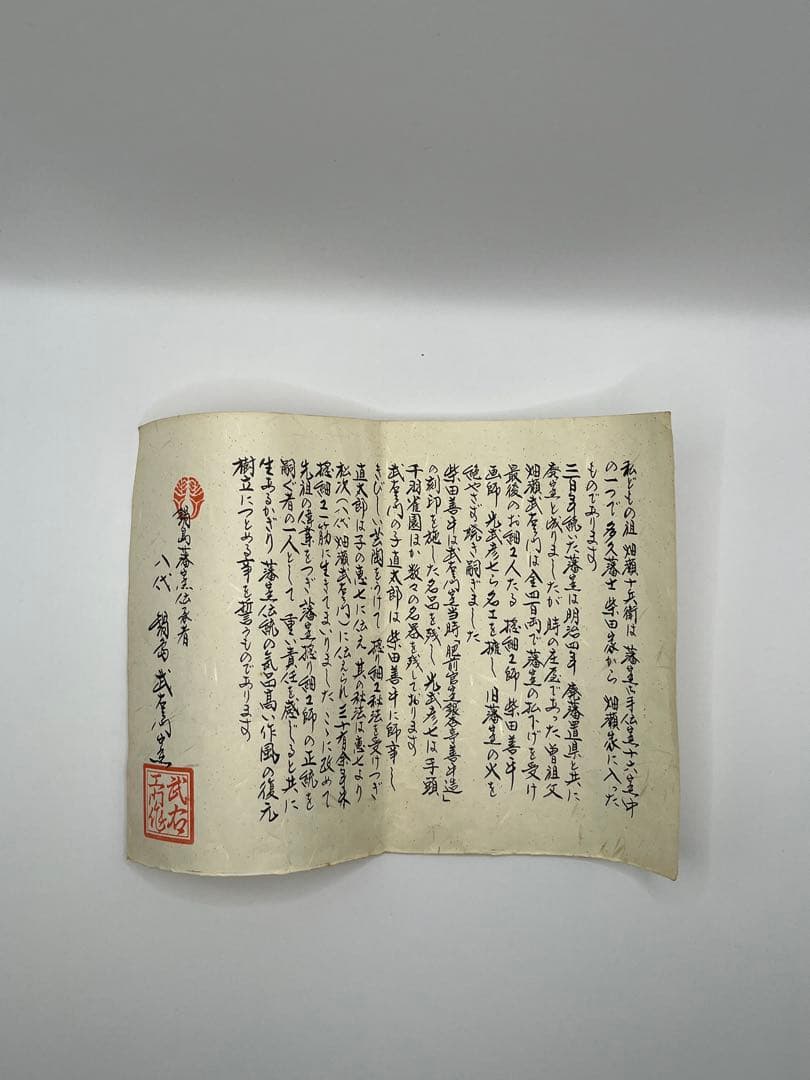 私どもの祖 畑瀬十兵衛は 藩窯御手伝窯十六窯中
の一つで 多久藩士 柴田家から 畑瀬家に入った
ものであります
三百年続いた藩窯は 明治四年 廃藩置県と共に
廃窯と成りましたが 時の庄屋であった 曽祖父
畑瀬武右ヱ門は 金四百両で藩窯の払下げを受け
最後のお細工人たる 捻細工師 柴田善平
画師 光武彦七ら名工を擁し 旧藩窯の火を
絶やさず 焼き嗣ぎました
柴田善平は武右ヱ門窯当時「肥前 善平造」
の刻印を施した名品を残し 光武彦七は 手頭
千羽雀図ほか 数々の名器を残しております
武右ヱ門の子 直太郎は 柴田善平に師事し
きびしい薫陶をうけて 捻り細工秘法を受けつぎ
直太郎は子の恵七に伝え 其の秘法は恵七より
松次(八代 畑瀬武右ヱ門)に伝えられ 三十有余年来
捻細工一筋に生きてまいりました ここに改めて
先祖の偉業をつぎ 藩窯捻り細工師の正統を
嗣ぐ者の一人として 重い責任を感じると共に
生あるかぎり 藩窯伝統の気品高い作風の復元
樹立につとめる事を誓うものであります
鍋島藩窯伝承者
八代 鍋島 武右ヱ門窯
武右
ヱ門作